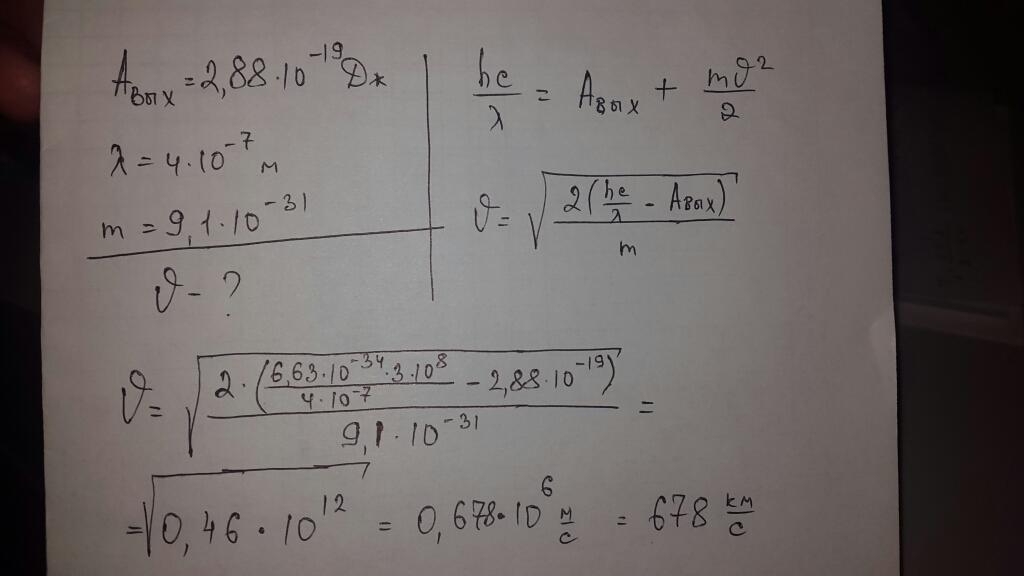 Aвых = 2,88·10⁻¹⁹ Дж
λ = 4·10⁻⁷ м
m = 9,1·10⁻³¹
υ - ?
hc/λ = Aвых + mυ²/2
υ = √(2(hc/λ - Aвых)/m)
υ = √(2·(6,63·10⁻³⁴·3·10⁸/4·10⁻⁷ - 2,88·10⁻¹⁹)/9,1·10⁻³¹) =
= √(0,46·10¹²) = 0,678·10⁶ м/с = 678 км/с